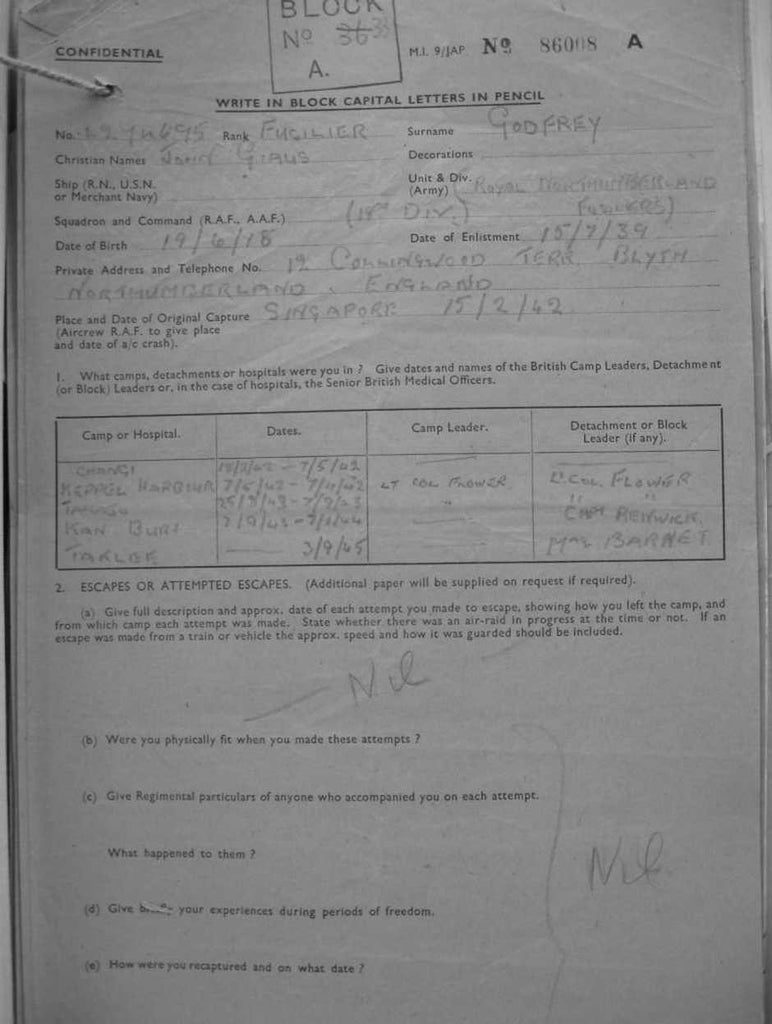 BLOCK
Nº 36 33
A.
CONFIDENTIAL
M.I. 9/JAP Nº 86008 A
WRITE IN BLOCK CAPITAL LETTERS IN PENCIL
No. 4274695 Rank FUSILIER Surname GODFREY
Christian Names JOHN Decorations
Ship (R.N., U.S.N. or Merchant Navy)
Unit & Div. (Army) (ROYAL NORTHUMBERLAND FUSILIERS)
(18th DIV.)
Squadron and Command (R.A.F., A.A.F.)
Date of Birth 19/6/18 Date of Enlistment 15/7/39
Private Address and Telephone No. 12 COLLINGWOOD TERR. BLYTH
NORTHUMBERLAND. ENGLAND
Place and Date of Original Capture SINGAPORE 15/2/42
(Aircrew R.A.F. to give place
and date of a/c crash).
1. What camps, detachments or hospitals were you in ? Give dates and names of the British Camp Leaders, Detachment
(or Block) Leaders or, in the case of hospitals, the Senior British Medical Officers.
Camp or Hospital. Dates. Camp Leader. Detachment or Block Leader (if any).
CHANGI - 7/5/42
KEPPEL HARBOUR 7/5/42 - LT COL FLOWER Lt COL. FLOWER
" " "
KAN BURI CAPT RENWICK.
TAKLEE 3/9/45 BARNET
2. ESCAPES OR ATTEMPTED ESCAPES. (Additional paper will be supplied on request if required).
(a) Give full description and approx. date of each attempt you made to escape, showing how you left the camp, and
from which camp each attempt was made. State whether there was an air-raid in progress at the time or not. If an
escape was made from a train or vehicle the approx. speed and how it was guarded should be included.
Nil
(b) Were you physically fit when you made these attempts ?
(c) Give Regimental particulars of anyone who accompanied you on each attempt.
What happened to them ?
Nil
(d) Give your experiences during periods of freedom.
(e) How were you recaptured and on what date ?